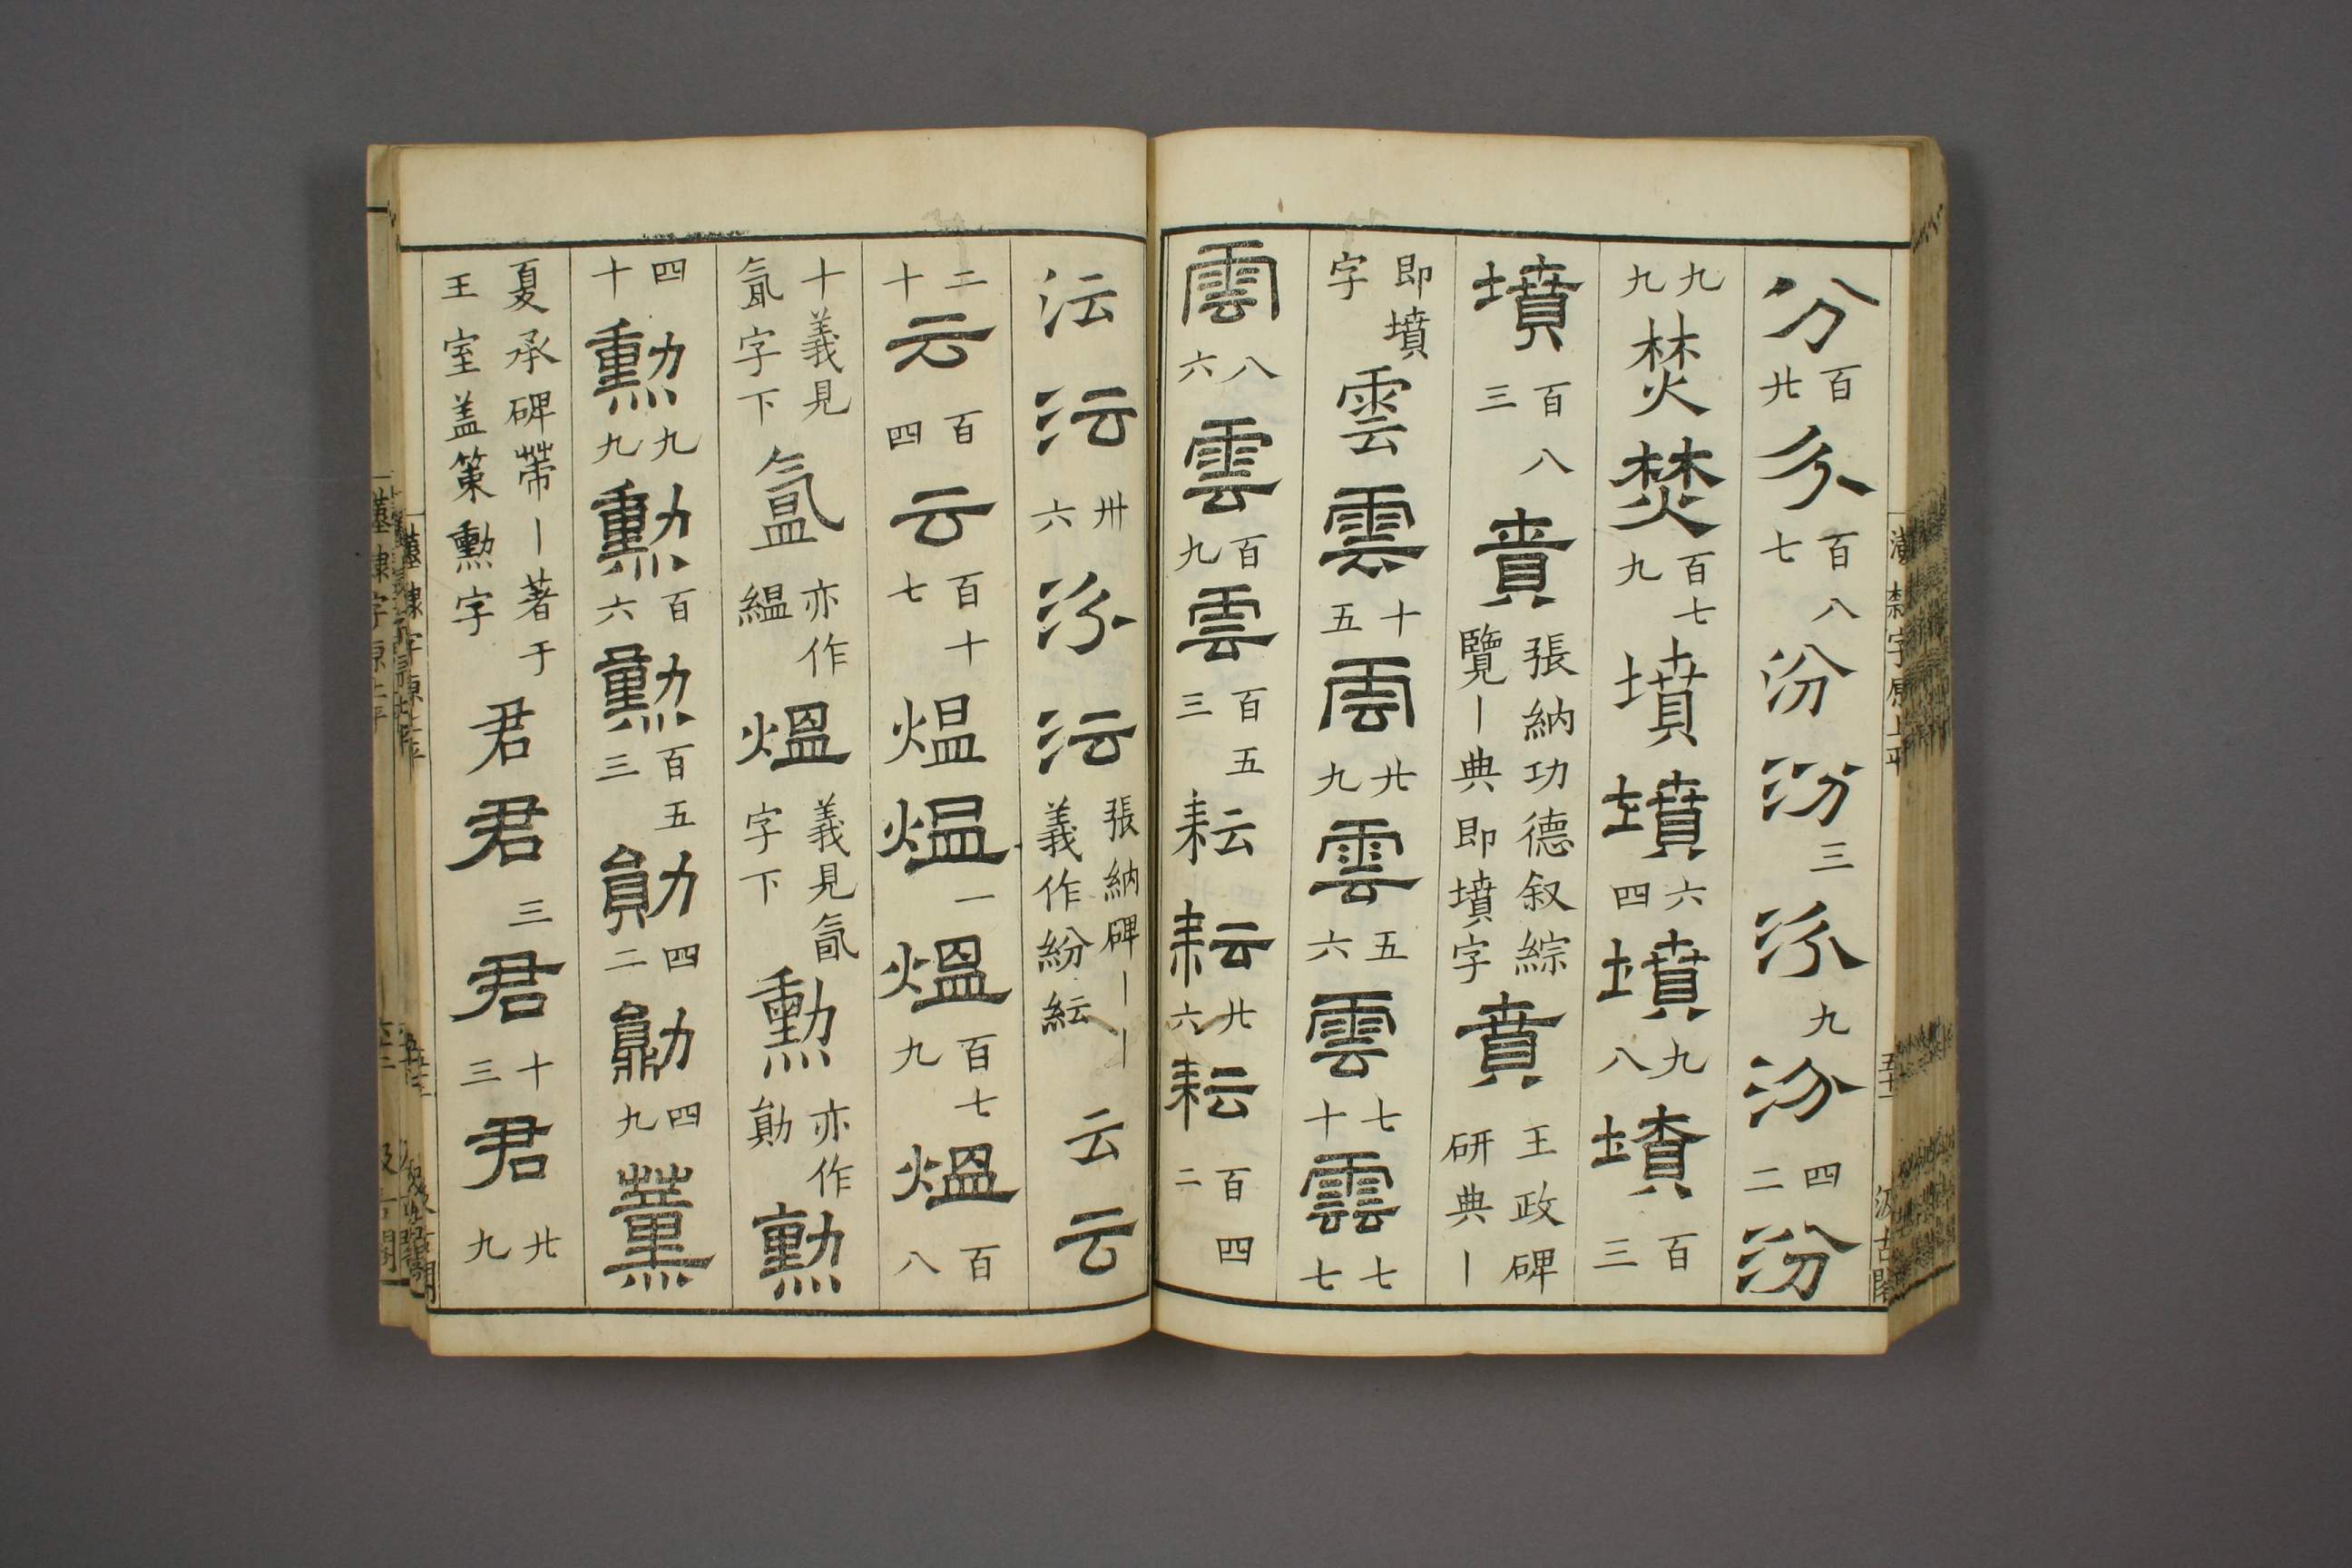 分百廿分百八七汾汾三汾九汾四二汾
九九焚焚百七九墳墳六四墳九八墳百三
墳百八三賁張納功德叙綜覽丨典即墳字賁王政碑研典丨
即墳字雲雲十五雲廿九雲五六雲七十雲七七
雲八六雲百九雲百五三耘耘廿六耘百四二
沄沄卅六沄沄張納碑丨丨義作紛紜云云
二十云百四云百十七熅熅一熅百七九熅百八
十義見氤字下氳亦作縕熅義見氤字下勲亦作勛勲
四十勲九九勲百六勲百五三勛四二勛四九薰
夏承碑帶丨著于王室盖策勲字君君三君十三君廿九
漢隸字原上平 五十一 汲古閣